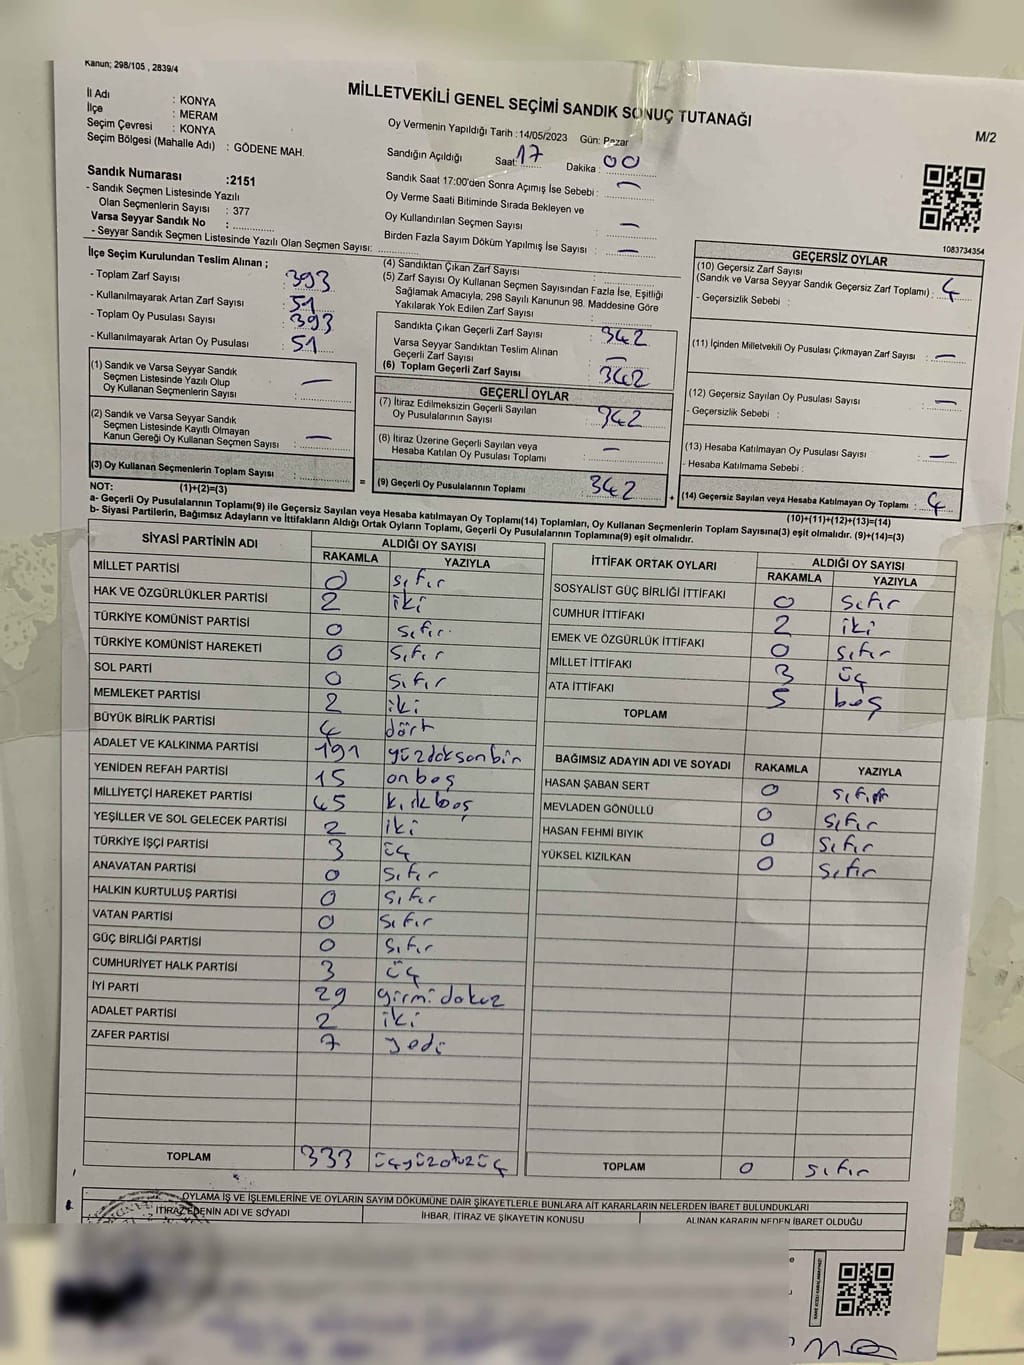 Kanun; 298/105 , 2839/4
MİLLETVEKİLİ GENEL SEÇİMİ SANDIK SONUÇ TUTANAĞI
M/2
İl Adı : KONYA
İlçe : MERAM
Seçim Çevresi : KONYA
Seçim Bölgesi (Mahalle Adı) : GÖDENE MAH.
Sandık Numarası :2151
- Sandık Seçmen Listesinde Yazılı
Olan Seçmenlerin Sayısı : 377
Varsa Seyyar Sandık No :
- Seyyar Sandık Seçmen Listesinde Yazılı Olan Seçmen Sayısı:
Oy Vermenin Yapıldığı Tarih :14/05/2023 Gün: Pazar
Sandığın Açıldığı Saat: 17 Dakika : 00
Sandık Saat 17:00'den Sonra Açımış İse Sebebi : —
Oy Verme Saati Bitiminde Sırada Bekleyen ve
Oy Kullandırılan Seçmen Sayısı : —
Birden Fazla Sayım Döküm Yapılmış İse Sayısı : —
1083734354
İlçe Seçim Kurulundan Teslim Alınan ;
- Toplam Zarf Sayısı : 393
- Kullanılmayarak Artan Zarf Sayısı : 51
- Toplam Oy Pusulası Sayısı : 393
- Kullanılmayarak Artan Oy Pusulası : 51
(1) Sandık ve Varsa Seyyar Sandık
Seçmen Listesinde Yazılı Olup
Oy Kullanan Seçmenlerin Sayısı : —
(2) Sandık ve Varsa Seyyar Sandık
Seçmen Listesinde Kayıtlı Olmayan
Kanun Gereği Oy Kullanan Seçmen Sayısı : —
(3) Oy Kullanan Seçmenlerin Toplam Sayısı :
(4) Sandıktan Çıkan Zarf Sayısı :
(5) Zarf Sayısı Oy Kullanan Seçmen Sayısından Fazla İse, Eşitliği
Sağlamak Amacıyla, 298 Sayılı Kanunun 98. Maddesine Göre
Yakılarak Yok Edilen Zarf Sayısı :
Sandıkta Çıkan Geçerli Zarf Sayısı : 342
Varsa Seyyar Sandıktan Teslim Alınan
Geçerli Zarf Sayısı : —
(6) Toplam Geçerli Zarf Sayısı : 342
GEÇERLİ OYLAR
(7) İtiraz Edilmeksizin Geçerli Sayılan
Oy Pusulalarının Sayısı : 342
(8) İtiraz Üzerine Geçerli Sayılan veya
Hesaba Katılan Oy Pusulası Toplamı : —
= (9) Geçerli Oy Pusulalarının Toplamı : 342
GEÇERSİZ OYLAR
(10) Geçersiz Zarf Sayısı
(Sandık ve Varsa Seyyar Sandık Geçersiz Zarf Toplamı) : 4
- Geçersizlik Sebebi :
(11) İçinden Milletvekili Oy Pusulası Çıkmayan Zarf Sayısı : —
(12) Geçersiz Sayılan Oy Pusulası Sayısı : —
- Geçersizlik Sebebi :
(13) Hesaba Katılmayan Oy Pusulası Sayısı : —
- Hesaba Katılmama Sebebi :
+ (14) Geçersiz Sayılan veya Hesaba Katılmayan Oy Toplamı : 4
NOT: (1)+(2)=(3)
(10)+(11)+(12)+(13)=(14)
a- Geçerli Oy Pusulalarının Toplamı(9) ile Geçersiz Sayılan veya Hesaba katılmayan Oy Toplamı(14) Toplamları, Oy Kullanan Seçmenlerin Toplam Sayısına(3) eşit olmalıdır. (9)+(14)=(3)
b- Siyasi Partilerin, Bağımsız Adayların ve İttifakların Aldığı Ortak Oyların Toplamı, Geçerli Oy Pusulalarının Toplamına(9) eşit olmalıdır.
SİYASİ PARTİNİN ADI ALDIĞI OY SAYISI
RAKAMLA YAZIYLA
MİLLET PARTİSİ 0 sıfır
HAK VE ÖZGÜRLÜKLER PARTİSİ 2 iki
TÜRKİYE KOMÜNİST PARTİSİ 0 sıfır
TÜRKİYE KOMÜNİST HAREKETİ 0 sıfır
SOL PARTİ 0 sıfır
MEMLEKET PARTİSİ 2 iki
BÜYÜK BİRLİK PARTİSİ 4 dört
ADALET VE KALKINMA PARTİSİ 191 yüzdoksonbin
YENİDEN REFAH PARTİSİ 15 onbeş
MİLLİYETÇİ HAREKET PARTİSİ 45 kırkbeş
YEŞİLLER VE SOL GELECEK PARTİSİ 2 iki
TÜRKİYE İŞÇİ PARTİSİ 3 üç
ANAVATAN PARTİSİ 0 sıfır
HALKIN KURTULUŞ PARTİSİ 0 sıfır
VATAN PARTİSİ 0 sıfır
GÜÇ BİRLİĞİ PARTİSİ 0 sıfır
CUMHURİYET HALK PARTİSİ 3 üç
İYİ PARTİ 29 yirmidokuz
ADALET PARTİSİ 2 iki
ZAFER PARTİSİ 7 yedi
TOPLAM 333 üçyüzotuzüç
İTTİFAK ORTAK OYLARI ALDIĞI OY SAYISI
RAKAMLA YAZIYLA
SOSYALİST GÜÇ BİRLİĞİ İTTİFAKI 0 sıfır
CUMHUR İTTİFAKI 2 iki
EMEK VE ÖZGÜRLÜK İTTİFAKI 0 sıfır
MİLLET İTTİFAKI 3 üç
ATA İTTİFAKI 5 beş
TOPLAM
BAĞIMSIZ ADAYIN ADI VE SOYADI RAKAMLA YAZIYLA
HASAN ŞABAN SERT 0 sıfır
MEVLADEN GÖNÜLLÜ 0 sıfır
HASAN FEHMI BIYIK 0 sıfır
YÜKSEL KIZILKAN 0 sıfır
TOPLAM 0 sıfır
OYLAMA İŞ VE İŞLEMLERİNE VE OYLARIN SAYIM DÖKÜMÜNE DAİR ŞİKAYETLERLE BUNLARA AİT KARARLARIN NELERDEN İBARET BULUNDUKLARI
İTİRAZ EDENİN ADI VE SOYADI İHBAR, İTİRAZ VE ŞİKAYETİN KONUSU ALINAN KARARIN NEDEN İBARET OLDUĞU